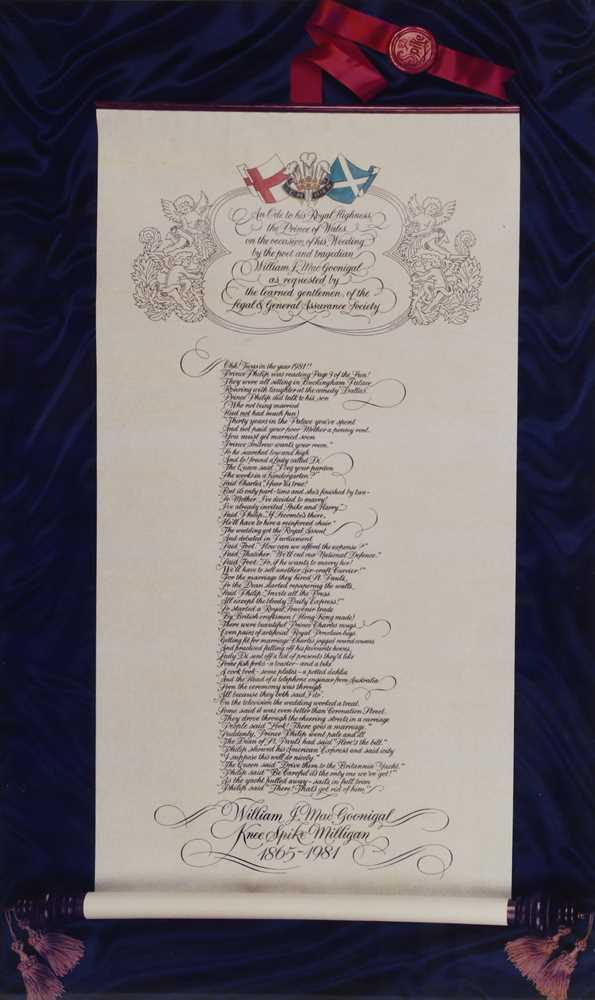 Spike
An Ode to his Royal Highness,
the Prince of Wales
on the occasion of his Wedding
by the poet and tragedian
William J. Mac Goonigal
as requested by
the learned gentlemen of the
Legal & General Assurance Society
Ohh! Twas in the year 1981!!
Prince Philip was reading Page 3 of the Sun!
They were all sitting in Buckingham Palace
Roaring with laughter at the comedy 'Dallas'.
Prince Philip did talk to his son
(Who not being married
Had not had much fun)
"Thirty years in the Palace you've spent
And not paid your poor Mother a penny rent.
You must get married soon
Prince Andrew wants your room."
So he searched low and high
And lo! found a Lady called Di.
The Queen said "I beg your pardon
She works in a Kindergarten?"
Said Charles, "Fear its true!
But its only part-time and she's finished by two-
So Mother, I've decided to marry!
I've already invited Spike and Harry."
Said Philip, "If Secombe's there,
He'll have to hire a reinforced chair."
The wedding got the Royal Assent
And debated in Parliament.
Said Foot "How can we afford the expense?"
Said Thatcher "We'll cut our National Defence."
Said Foot "So, if he wants to marry her!
We'll have to sell another Air-craft Carrier!"
For the marriage they hired St. Paul's,
So the Dean started repapering the walls.
Said Philip "Invite all the Press
All except the bloody Daily Express!"
So started a Royal Souvenir trade
By British craftsmen! (Hong Kong made!)
There were beautiful Prince Charles mugs
Even pairs of artificial Royal Porcelain lugs.
Getting fit for marriage Charles jogged round
And practised falling off his favourite horses.
Lady Di sent off a list of presents they'd like
Some fish forks - a toaster - and a bike
A cook book - some plates - a potted dahlia
And the Head of a telephone engineer from Australia.
Soon the ceremony was through
All because they both said "I do".
On the television the wedding worked a treat.
Some said it was even better than Coronation Street.
They drove through the cheering streets in a carriage
People said "Look! There goes a marriage."
Suddenly, Prince Philip went pale and ill
The Dean of St. Paul's had said "Here's the bill."
Philip showed his American Express and said icily
"I suppose this will do nicely."
The Queen said "Drive them to the Britannia Yacht."
Philip said "Be Careful it's the only one we've got!"
As the yacht pulled away - sails in full trim
Philip said "There! That's got rid of him."
William J. Mac Goonigal
Knee Spike Milligan
1865-1981